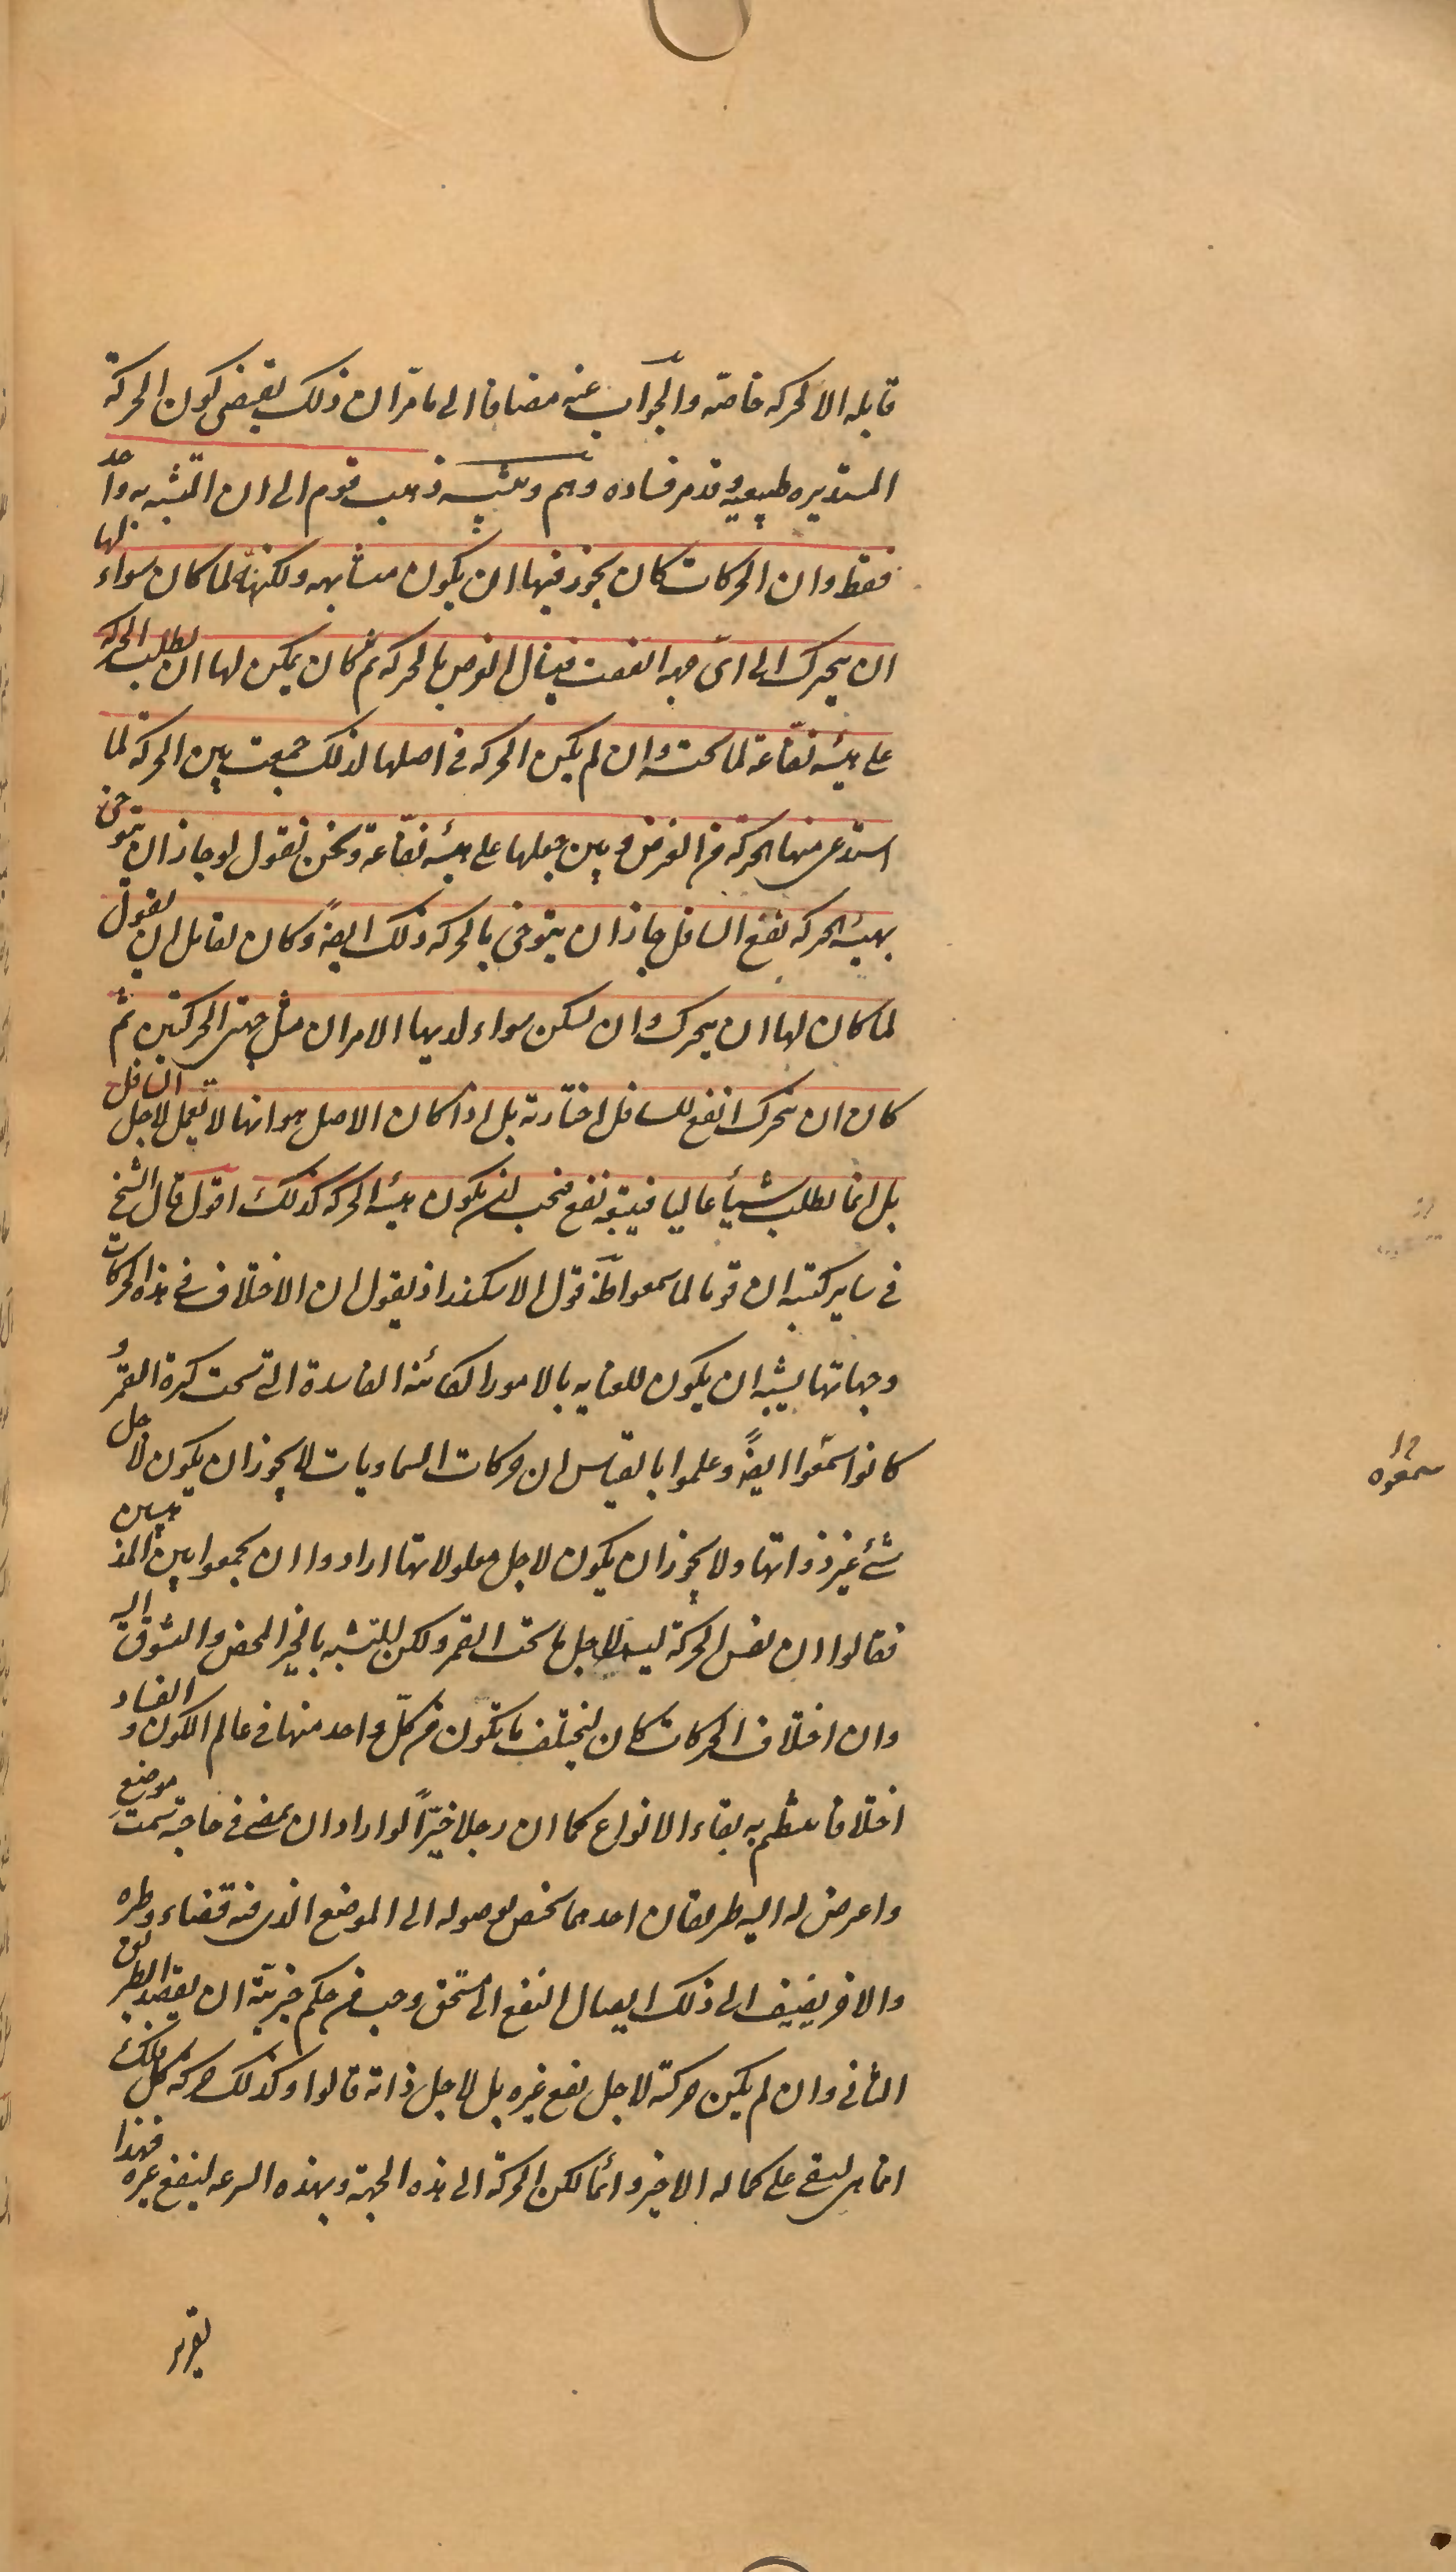 قابله الا لحركه خاصه والجواب عنه مضافا الى ما مرّ ان ذلك يقتضى كون الحركة
المستديره طبيعيه وقد مر فساده وهم وتنبيه ذهب قوم الى ان المتشبه به واحد
فقط وان الحركات كان يجوز فيها ان يكون متشابهه ولكنها لما كان سواء لها
ان يتحرك الى اى جهه اتفقت فينال الغرض بالحركه ثم كان يمكن لها ان يطلب الحركه
على هيئه نفّاعة لما تحته وان لم يكن الحركه فى اصلها لذلك جمعت بين الحركة لما
استدعى منها الحركة من الغرض وبين جعلها على هيئه نفّاعة ونحن نقول لو جاز ان يتوخى
بهيئه الحركه نفع السافل جاز ان يتوخى بالحركه ذلك ايضًا وكان لقائل ان يقول
لما كان لها ان يتحرك وان يسكن سواء لديها الامران مثل جهتى الحركتين ثم
كان ان يتحرك انفع للسافل اختارته بل اذا كان الاصل هو انها لا تعمل لاجل السافل
بل انما يطلب شيأ عاليا فيتبعه نفع فيجب ان يكون هيئه الحركه كذلك اقول قال الشيخ
فى ساير كتبه ان قوما لما سمعوا ظاهر قول الاسكندر اذ يقول ان الاختلاف فى هذه الحركات
وجهاتها يشبه ان يكون للعنايه بالامور الكائنه الفاسدة التى تحت كرة القمر و
كانوا سمعوا ايضًا وعلموا بالقياس ان حركات السماويات لا يجوز ان يكون لاجل
شئ غير ذواتها ولا يجوز ان يكون لاجل معلولاتها ارادوا ان يجمعوا بين المذهبين
فقالوا ان نفس الحركة ليست لاجل ما تحت القمر ولكن للتشبه بالخير المحض والتشوق اليه
وان اختلاف الحركات كان ليختلف ما يتكون من كلّ واحد منها فى عالم الكون والفساد
اختلافا ينتظم به بقاء الانواع كما ان رجلا خيّرًا لو اراد ان يمضى فى حاجته سمت موضع
واعرض له اليه طريقان احدهما يختص بوصوله الى الموضع الذى فيه قضاء وطره
والاخر يضيف الى ذلك ايصال النفع الى مستحق وجب فى حكم خيريته ان يقصد الطريق
الثانى وان لم يكن حركته لاجل نفع غيره بل لاجل ذاته قالوا وكذلك حركة كل فلك
انما هى ليبقى على كماله الاخير دائما لكن الحركة الى هذه الجهة وبهذه السرعه لينفع غيره فهذا
تقرير
سمعوه